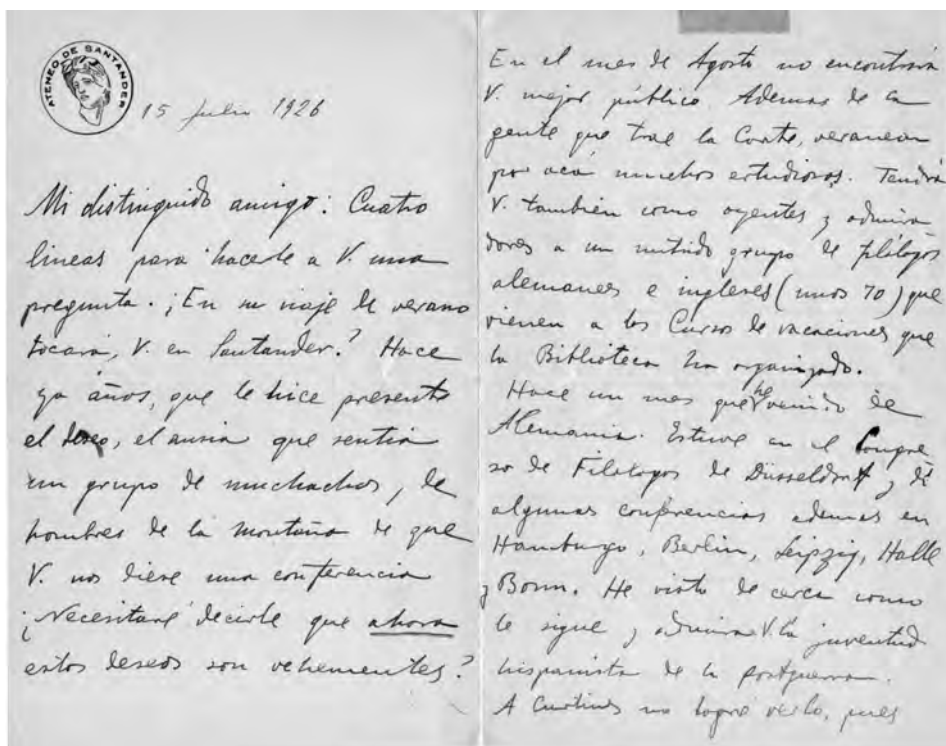 ATENEO DE SANTANDER
15 julio 1926
Mi distinguido amigo: Cuatro
lineas para hacerle a V. una
pregunta. ¿En su viaje de verano
tocará, V. en Santander? Hace
ya años, que le hice presente
el deseo, el ansia que sentía
un grupo de muchachos, de
hombres de la montaña de que
V. nos diese una conferencia
¿Necesitaré decirle que ahora
estos deseos son vehementes?
En el mes de Agosto no encontrará
V. mejor público. Ademas de la
gente que trae la Corte, veranean
por acá muchos estudiosos. Tendrá
V. también como oyentes y admira
dores a un nutrido grupo de filólogos
alemanes e ingleses (unos 70) que
vienen a los Cursos de vacaciones que
la Biblioteca ha organizado.
Hace un mes que he venido de
Alemania. Estuve en el Congre
so de Filologos de Dusseldorf y di
algunas conferencias ademas en
Hamburgo, Berlin, Leipzig, Halle
y Bonn. He visto de cerca como
le sigue y admira V. la juventud
hispanista de la postguerra.
A Curtius no logré verlo, pues